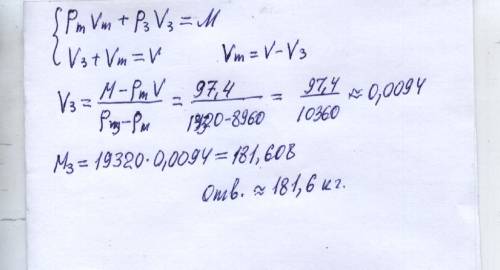 {ρₘVₘ + ρ₃V₃ = M
V₃ + Vₘ = V    Vₘ = V – V₃
V₃ = (M – ρₘV)/(ρ₃ – ρₘ) = 97,4/(19320 – 8960) = 97,4/10360 ≈ 0,0094
M₃ = 19320 · 0,0094 = 181,608
Отв. ≈ 181,6 кг.